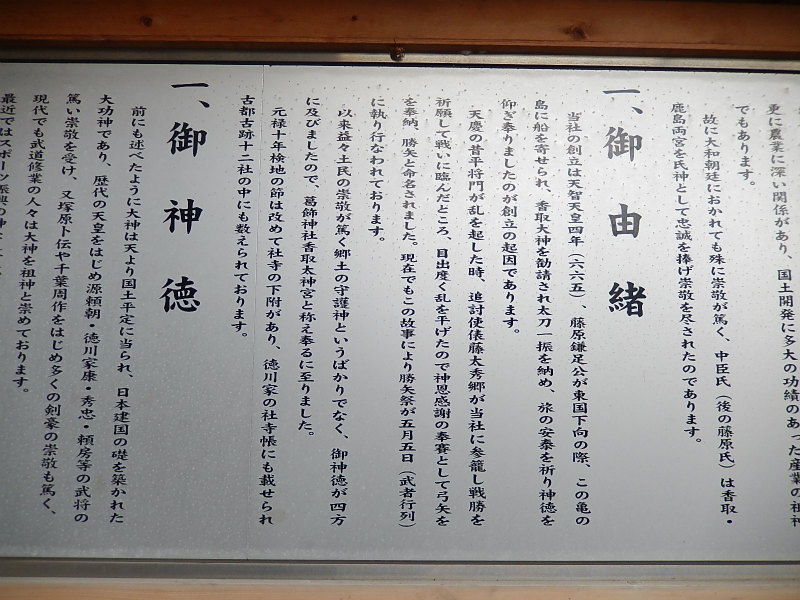 更に農業に深い関係があり、国土開発に多大の功績のあった産業の祖神
でもあります。
故に大和朝廷におかれても殊に崇敬が篤く、中臣氏（後の藤原氏）は香取・
鹿島両宮を氏神として忠誠を捧げ崇敬を尽されたのであります。
一、御由緒
当社の創立は天智天皇四年（六六五）、藤原鎌足公が東国下向の際、この亀の
島に船を寄せられ、香取大神を勧請され太刀一振を納め、旅の安泰を祈り神徳を
仰ぎ奉りましたのが創立の起因であります。
天慶の昔平将門が乱を起した時、追討使俵藤太秀郷が当社に参籠し戦勝を
祈願して戦いに臨んだところ、目出度く乱を平げたので神恩感謝の奉賽として弓矢を
を奉納、勝矢と命名されました。現在でもこの故事により勝矢祭が五月五日（武者行列）
に執り行なわれております。
以来益々土民の崇敬が篤く郷土の守護神というばかりでなく、御神徳が四方
に及びましたので、葛飾神社香取太神宮と称え奉るに至りました。
元禄十年検地の節は改めて社寺の下附があり、徳川家の社寺帳にも載せられ
古都古跡十二社の中にも数えられております。
一、御神徳
前にも述べたように大神は天より国土平定に当られ、日本建国の礎を築かれた
大功神であり、歴代の天皇をはじめ源頼朝・徳川家康・秀忠・頼房等の武将の
篤い崇敬を受け、又塚原卜伝や千葉周作をはじめ多くの剣豪の崇敬も篤く、
現代でも武道修業の人々は大神を祖神と崇めております。
最近ではスポーツ振興の神